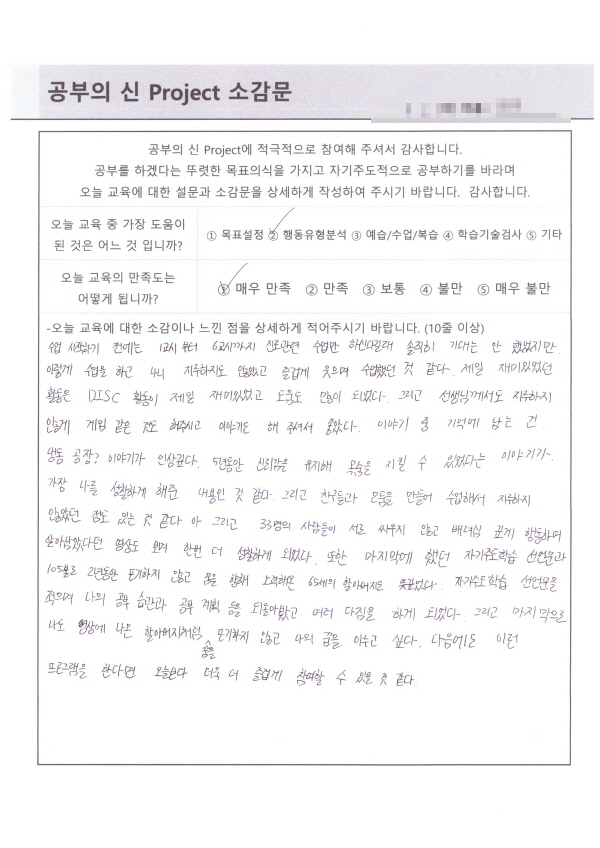 공부의 신 Project 소감문
공부의 신 Project에 적극적으로 참여해 주셔서 감사합니다.
공부를 하겠다는 뚜렷한 목표의식을 가지고 자기주도적으로 공부하기를 바라며
오늘 교육에 대한 설문과 소감문을 상세하게 작성하여 주시기 바랍니다. 감사합니다.
오늘 교육 중 가장 도움이
된 것은 어느 것 입니까?
① 목표설정 ② 행동유형분석 ③ 예습/수업/복습 ④ 학습기술검사 ⑤ 기타
오늘 교육의 만족도는
어떻게 됩니까?
① 매우 만족 ② 만족 ③ 보통 ④ 불만 ⑤ 매우 불만
-오늘 교육에 대한 소감이나 느낀 점을 상세하게 적어주시기 바랍니다. (10줄 이상)
수업 시작하기 전에는 1교시부터 6교시까지 진로관련 수업만 하신다길래 솔직히 기대는 안 했었지만
이렇게 수업을 하고 나니 지루하지도 않았고 즐겁게 웃으며 수업했던 것 같다. 제일 재미있었던
활동은 DISC 활동이 제일 재미있었고 도움도 많이 되었다. 그리고 선생님께서도 지루하지
않게 게임 같은 것도 해주시고 이야기도 해 주셔서 좋았다. 이야기 중 기억에 남는 건
냉동 공장? 이야기가 인상깊다. 5년동안 신뢰감을 유지해 목숨을 지킬 수 있었다는 이야기가
가장 나를 성찰하게 해준 내용인 것 같다. 그리고 친구들과 모둠을 만들어 수업해서 지루하지
않았던 점도 있는 것 같다 아 그리고 33명의 사람들이 서로 싸우지 않고 배려심 깊게 행동하며
살아남았다던 영상도 보며 한번 더 성찰하게 되었다. 또한 마지막에 했던 자기주도학습 선언문과
105불로 2년동안 포기하지 않고 꿈을 향해 노력하던 65세의 할아버지도 뜻깊었다. 자기주도학습 선언문을
적으며 나의 공부 습관과 공부 계획 등을 되돌아봤고 여러 다짐을 하게 되었다. 그리고 마지막으로
나도 영상에 나온 할아버지처럼 꿈을 포기하지 않고 나의 꿈을 이루고 싶다. 다음에도 이런
프로그램을 한다면 오늘보다 더욱 더 즐겁게 참여할 수 있을 것 같다.